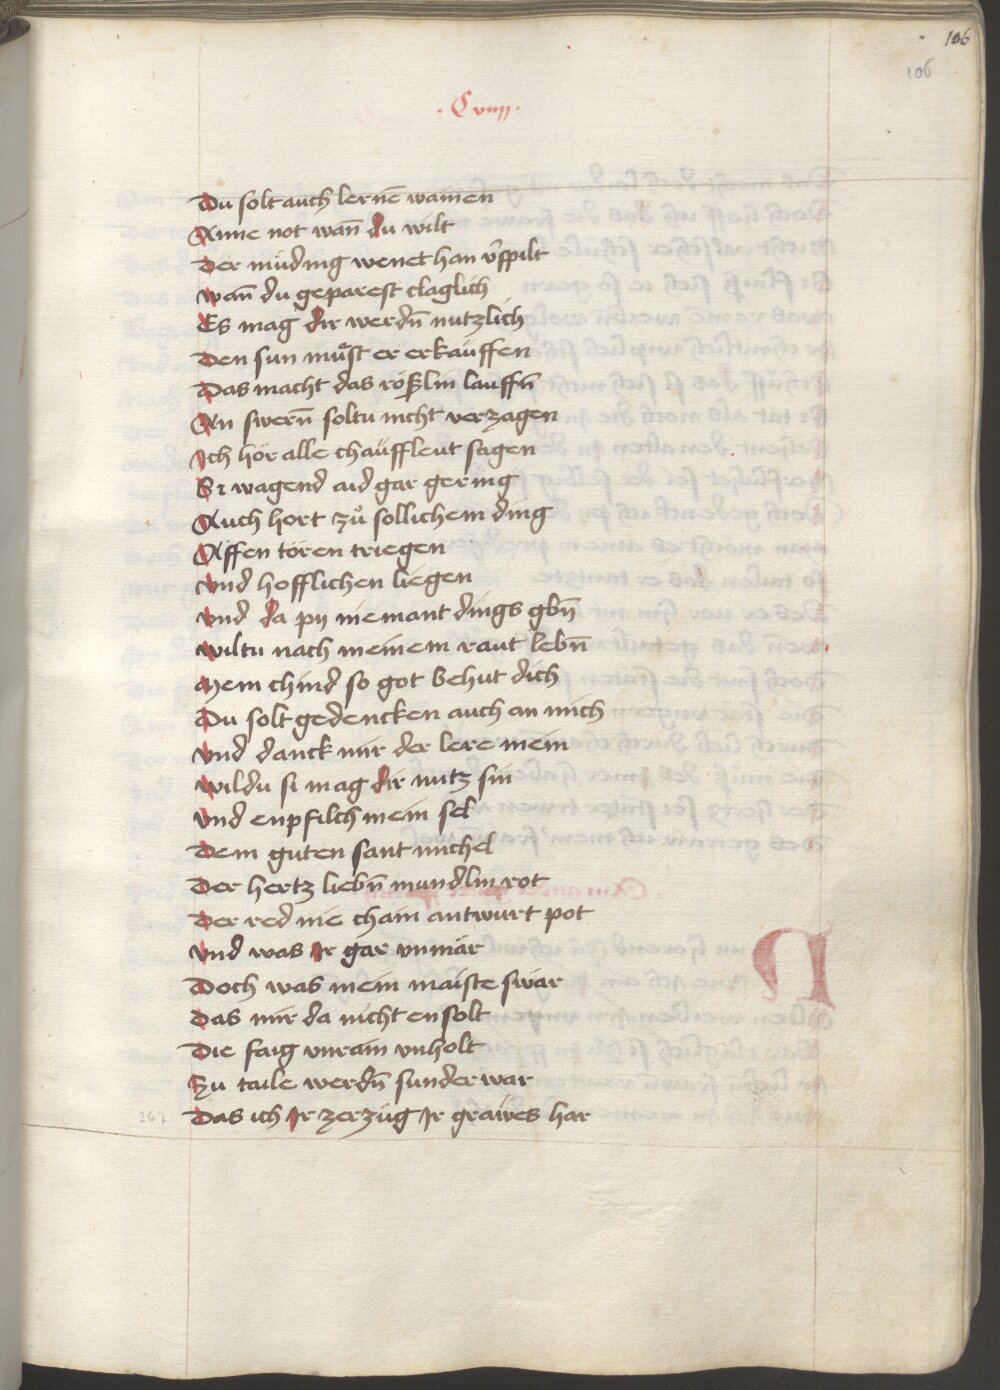 106
106
· C viiij ·
Du solt auch lernē wainen
Anne not wañ du wilt
Der müding wenet han v̄spilt
wañ du geparest claglich
Es mag dir werdn̄ nutzlich
Den sun muͦst er erkauffen
Das macht das rößlin lauffn̄
An swern̄ soltu nicht verzagen
Ich hör alle chäuffleut sagen
Si wagend aid gar gering
Auch hort zuͦ sollichem ding
Affen tören triegen
vnd hofflichen liegen
vnd da py niemant dings gbn̄
wiltu nach meinem raut lebn̄
Mein chind so got behut dich
Du solt gedencken auch an mich
vnd danck mir der lere mein
wildu si mag dir nutz sin
vnd enpfilch mein sel
Dem guten sant michel
Der hertz liebn̄ mundlin rot
Der red nie chain antwurt pot
vnd was Ir gar vnmär
Doch was mein maiste swär
Das mir da nicht en solt
Die faig vnrain vnholt
Zu taile werdn̄ sunderwar
Das ich Ir zerzüg Ir grawes har
267